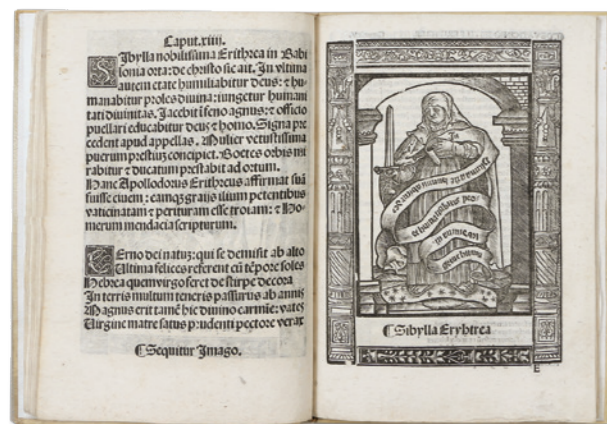 Caput.xiiij.
Sibylla nobilissima Erithrea in Babi
lonia orta: de christo sic ait. In vltima
autem etate humiliabitur deus: ⁊ hu
manabitur proles diuina: iungetur humani
tati diuinitas. Iacebit ĩ feno agnus: ⁊ officio
puellari educabitur deus ⁊ homo. Signa pre
cedent apud appellas. Mulier vetustissima
puerum concipiet. Boetes orbis mi
rabitur ⁊ ducatum prestabit ad ortum.
Hanc Apollodorus Erithreus affirmat suã
fuisse ciuem: eamqȝ graijs ilium petentibus
vaticinatam ⁊ perituram esse troiam: ⁊ Ho-
merum mendacia scripturum.
Cerno dei natuȝ: qui se demisit ab alto
Ultima felices referent cũ tẽpore soles
Hebrea quem virgo feret de stirpe decora
In terris multum teneris passurus ab annis
Magnus erit tamẽ hic diuino carmĩe: vates
Virgine matre satus prudenti pectore verax
⁋ Sequitur Imago.
⁋ Sibylla Erythrea
E